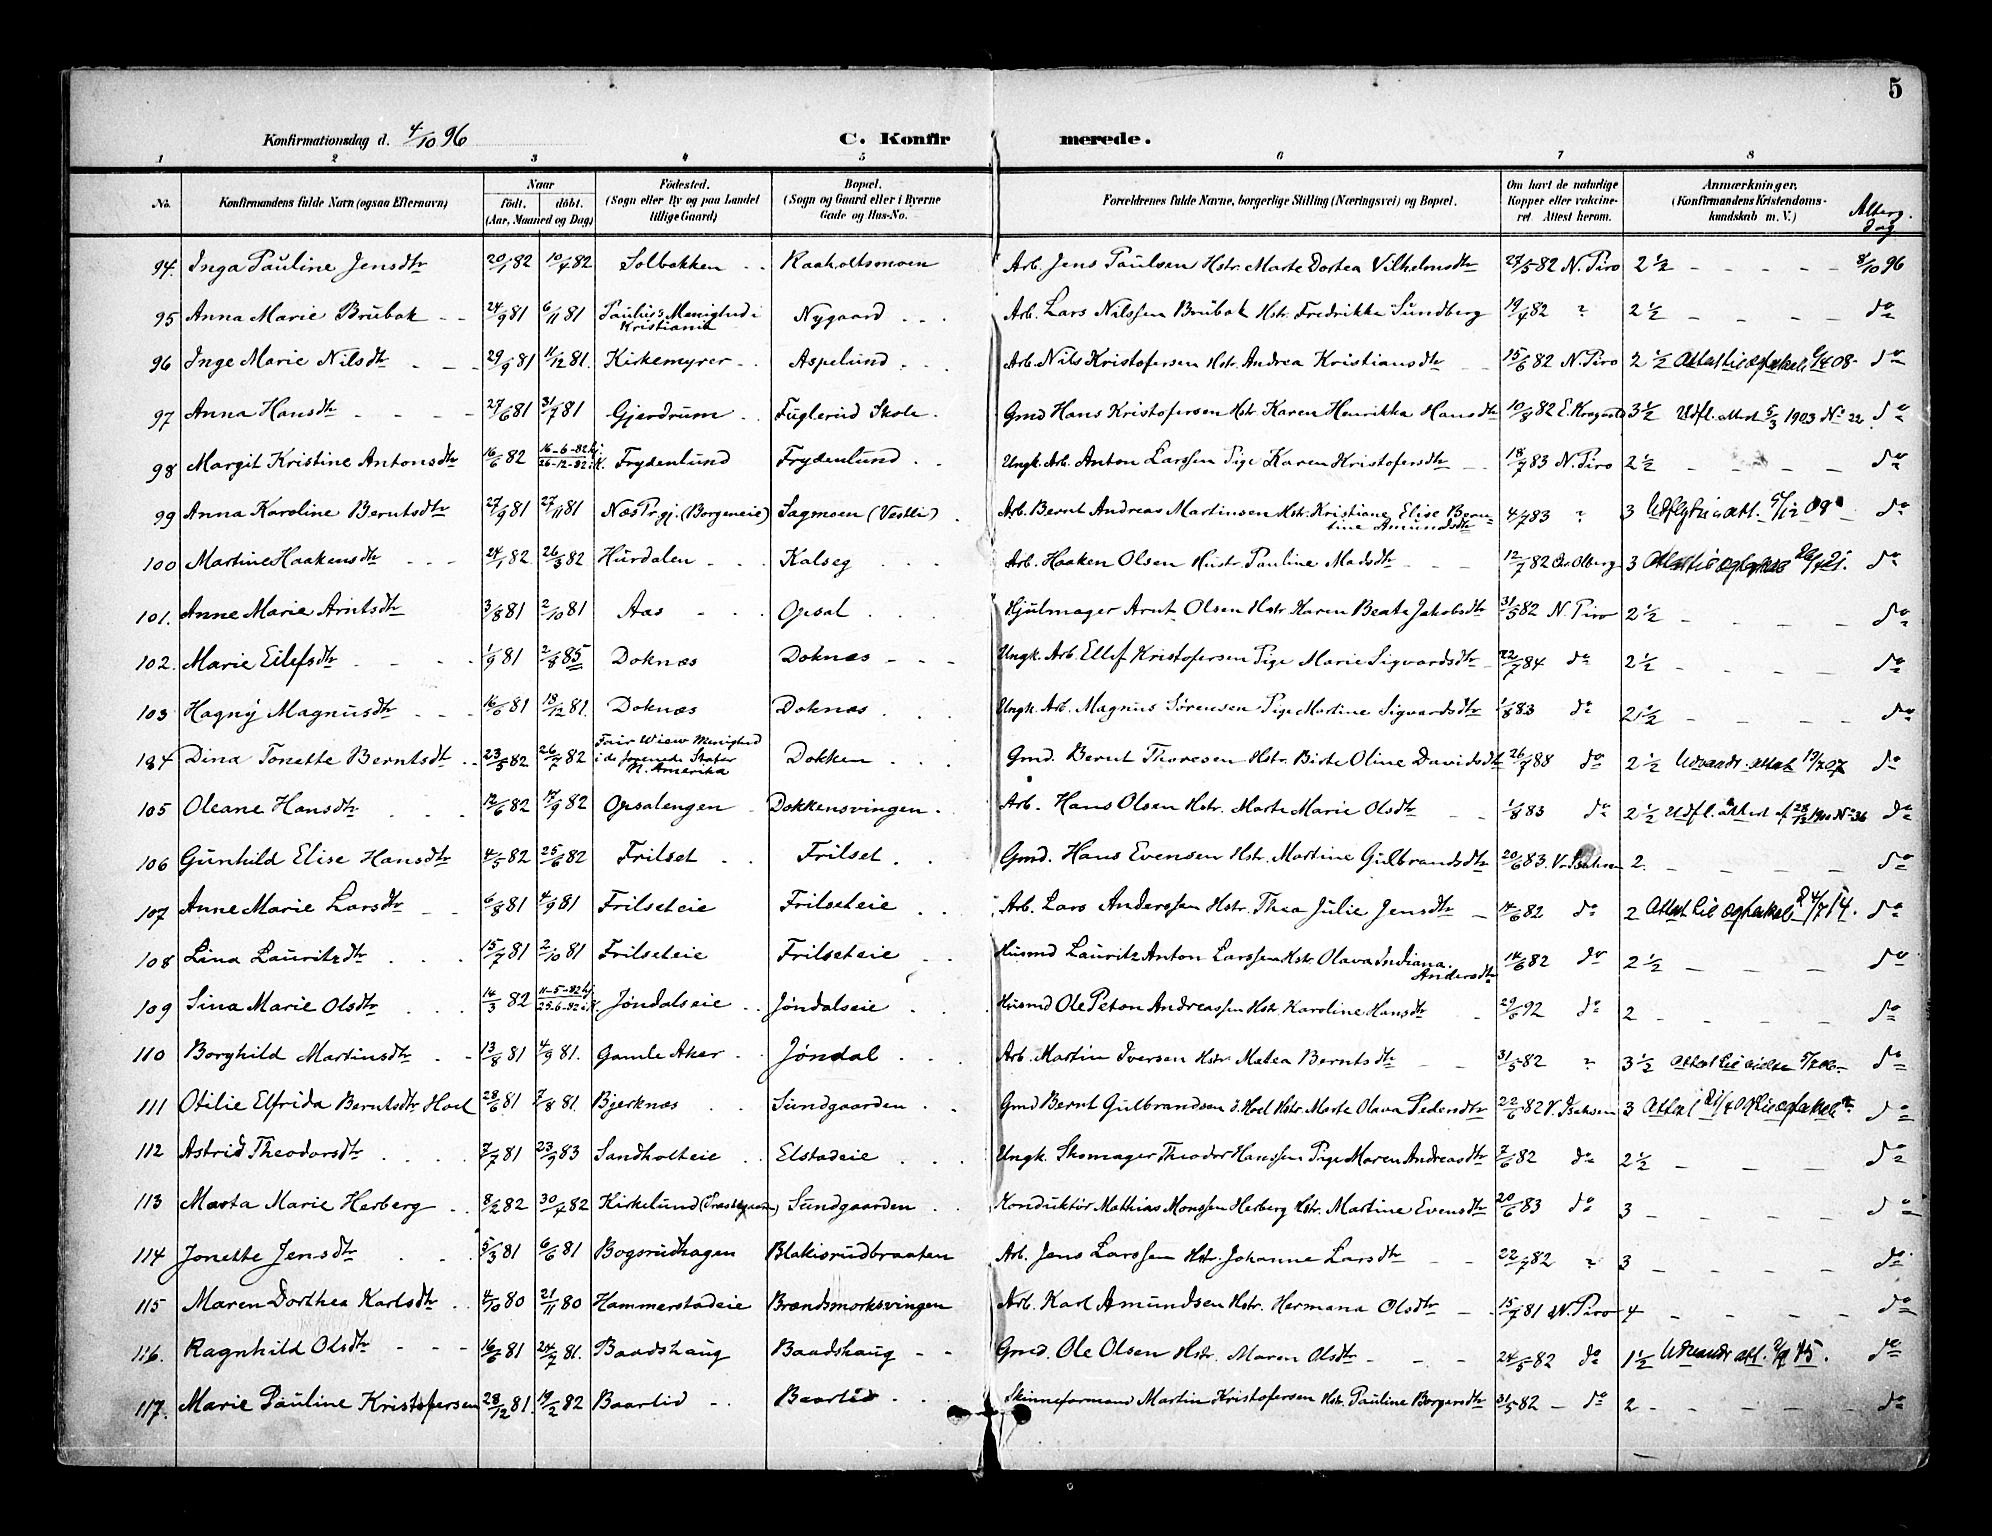 5
Konfirmationsdag d. 4/10 96 C. Konfirmerede.
1 2 3 4 5 6 7 8
No. Konfirmandens fulde Navn (ogsaa Efternavn) Naar født. døbt. (Aar, Maaned og Dag) Fødested. (Sogn eller By og paa Landet tillige Gaard) Bopæl. (Sogn og Gaard eller i Byerne Gade og Hus-No. Forældrenes fulde Navne, borgerlige Stilling (Næringsvei) og Bopæl. Om havt de naturlige Kopper eller vaccineret. Attest herom. Anmærkninger. (Konfirmandens Kristendomskundskab m. V.) Alterg. dag
94. Inga Pauline Jensdtr 20/1 82 10/4 82 Solbakken Raaholtsmoen Arb. Jens Paulsen Hstr. Marte Dortea Vilhelmsdtr 27/5 82 N. Piro 2 1/2 8/10 96
95 Anna Marie Brubak 24/9 81 6/11 81 Paulus's Menighed i Kristiania Nygaard Arb. Lars Nilssen Brubak Hstr. Fredrikke Sundberg 19/4 82 " 2 1/2 do
96 Inge Marie Nilsdtr 29/9 81 11/12 81. Kirkemyrer Aspelund Arb. Nils Kristofersen Hstr. Andrea Kristiansdtr 15/6 82 N. Piro 2 1/2 Attest til ægteskab 6/4 08. do
97 Anna Hansdtr 27/6 81 31/7 81 Gjerdrum Fuglerud Skole Gmd Hans Kristofersen Hstr. Karen Henrikka Hansdtr 10/8 82 E. 3 1/2 Udfl. attest 5/3 1903 No 22. do
98 Margit Kristine Antonsdtr 16/6 82 16-6-82 hj. 26-12-82 i K. Frydenlund Frydenlund Ungk. Arb. Anton Larssen Pige Karen Kristofersdtr 18/7 83 N. Piro 2 1/2 do
99 Anna Karoline Berntsdtr 27/9 81 27/11 81 Næs Prgj. (Borgeneie) Sagmoen (Vestli) Arb. Bernt Andreas Martinsen Hstr. Kristiane Elise Berntine Amundsdtr 4/7 83 " 3 Udflytn. att. 5/12 08 do
100 Martine Haakensdtr 24/1 82 26/3 82 Hurdalen Kalseg Arb. Haaken Olsen Hustr. Pauline Madsdtr 12/7 82 Olberg 3 Attest til ægteskab do
101. Anne Marie Arntsdtr 3/8 81 2/10 81 Aas Opsal Hjulmager Arnt Olsen Hstr. Karen Beate Jakobsdtr 31/5 82 N. Piro 2 1/2 do
102. Marie Eilefsdtr 1/9 81 2/8 85 Doknæs Doknæs Ungk. Arb. Ellef Kristofersen Pige Marie Sigvardsdtr 22/7 84 do 2 1/2 do
103 Hagny Magnusdtr 16/6 81 18/12 81. Doknæs Doknæs Ungk. Arb. Magnus Sørensen Pige Martine Sigvardsdtr 1/8 83 do 2 1/2 do
104 Dina Tonette Berntsdtr 23/5 82 26/7 82 Fair Wiew Menighed i de forenede Stater N. Amerika Dokken Gmd. Bernt Thoresen Hstr. Birte Oline Davidsdtr 26/7 88 do 2 1/2 Udvandr. attest 19/7 07 do
105 Oleane Hansdtr 12/6 82 17/9 82 Opsalengen Dokkensvingen Arb. Hans Olsen Hstr. Marte Marie Olsdtr 1/8 83 do 2 1/2 Udfl. attest af 28/12 1900 No 36 do
106 Gunhild Elise Hansdtr 4/5 82 25/6 82 Frilset Frilset Gmd. Hans Evensen Hstr. Martine Gulbrandsdtr 20/6 83 V. Isaksen 2. do
107 Anne Marie Larsdtr 6/8 81 4/9 81 Frilseteie Frilseteie Arb. Lars Anderssen Hstr. Thea Julie Jensdtr 14/6 82 do 2 Attest til ægteskab 24/7 14. do
108 Lina Lauritzdtr 15/7 81 2/10 81 Frilseteie Frilseteie Husmd Lauritz Anton Larssen Hstr. Olava Indiana Andersdtr 14/6 82 do 2 1/2 do
109 Sina Marie Olsdtr 14/3 82 11-5-82 hj. 25-6-82 i K. Jøndalseie Jøndalseie Husmd Ole Peton Andreassen Hstr. Karoline Hansdtr 29/6 92 do 2 do
110 Borghild Martinsdtr 13/8 81 4/9 81. Gamle Aker Jøndal Arb. Martin Iversen Hstr. Matea Berntsdtr 31/5 82 " 3 1/2 do
111 Otilie Elfrida Berntsdtr Hoel 28/6 81 7/8 81. Bjerknæs Sundgaarden Gmd Bernt Gulbrandsen Hoel Hstr. Marte Olava Pedersdtr 22/6 82 V. Isaksen 3 do
112 Astrid Theodorsdtr 7/7 81 23/9 83 Sandholteie Elstadeie Ungk. Skomager Theodor Hanssen Pige Maren Andreasdtr 7/6 82 do 2 1/2 do
113 Marta Marie Herberg 8/2 82 30/7 82 Kirkelund (Præstegaarden) Sundgaarden Konduktør Mathias Monssen Herberg Hstr. Martine Evensdtr 20/6 83 do 3 do
114 Jonette Jensdtr 5/3 81 6/6 81 Bogsrudhagen Blakisrudbraaten Arb. Jens Larssen Hstr. Johanne Larsdtr 22/7 82 " 3 do
115 Maren Dorthea Karlsdtr 4/10 80 21/11 80 Hammerstadeie Brændsmorksvingen Arb. Karl Amundsen Hstr. Hermana Olsdtr 15/7 81 N. Piro 4 do
116. Ragnhild Olsdtr 16/6 81 24/7 81. Baadshaug Baadshaug Gmd. Ole Olsen Hstr. Maren Olsdtr 24/5 82 do 1 1/2 Udvandr att. do
117. Marie Pauline Kristofersen 28/12 81 19/2 82 Baarlid Baarlid Skinneformand Martin Kristofersen Hstr. Pauline Borgersdtr 31/5 82 do 2 do